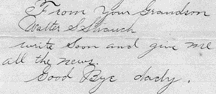 From Your Grandson
Walter S Strauch
write Soon and give me
all the news.
Good Bye dady.